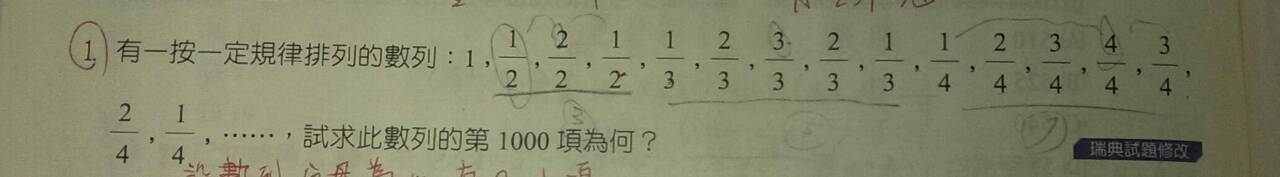 ① 有一按一定規律排列的數列:1, 1/2, 2/2, 1/2, 1/3, 2/3, 3/3, 2/3, 1/3, 1/4, 2/4, 3/4, 4/4, 3/4,
2/4, 1/4, ……,試求此數列的第 1000 項為何?
瑞典試題修改
③
⑦